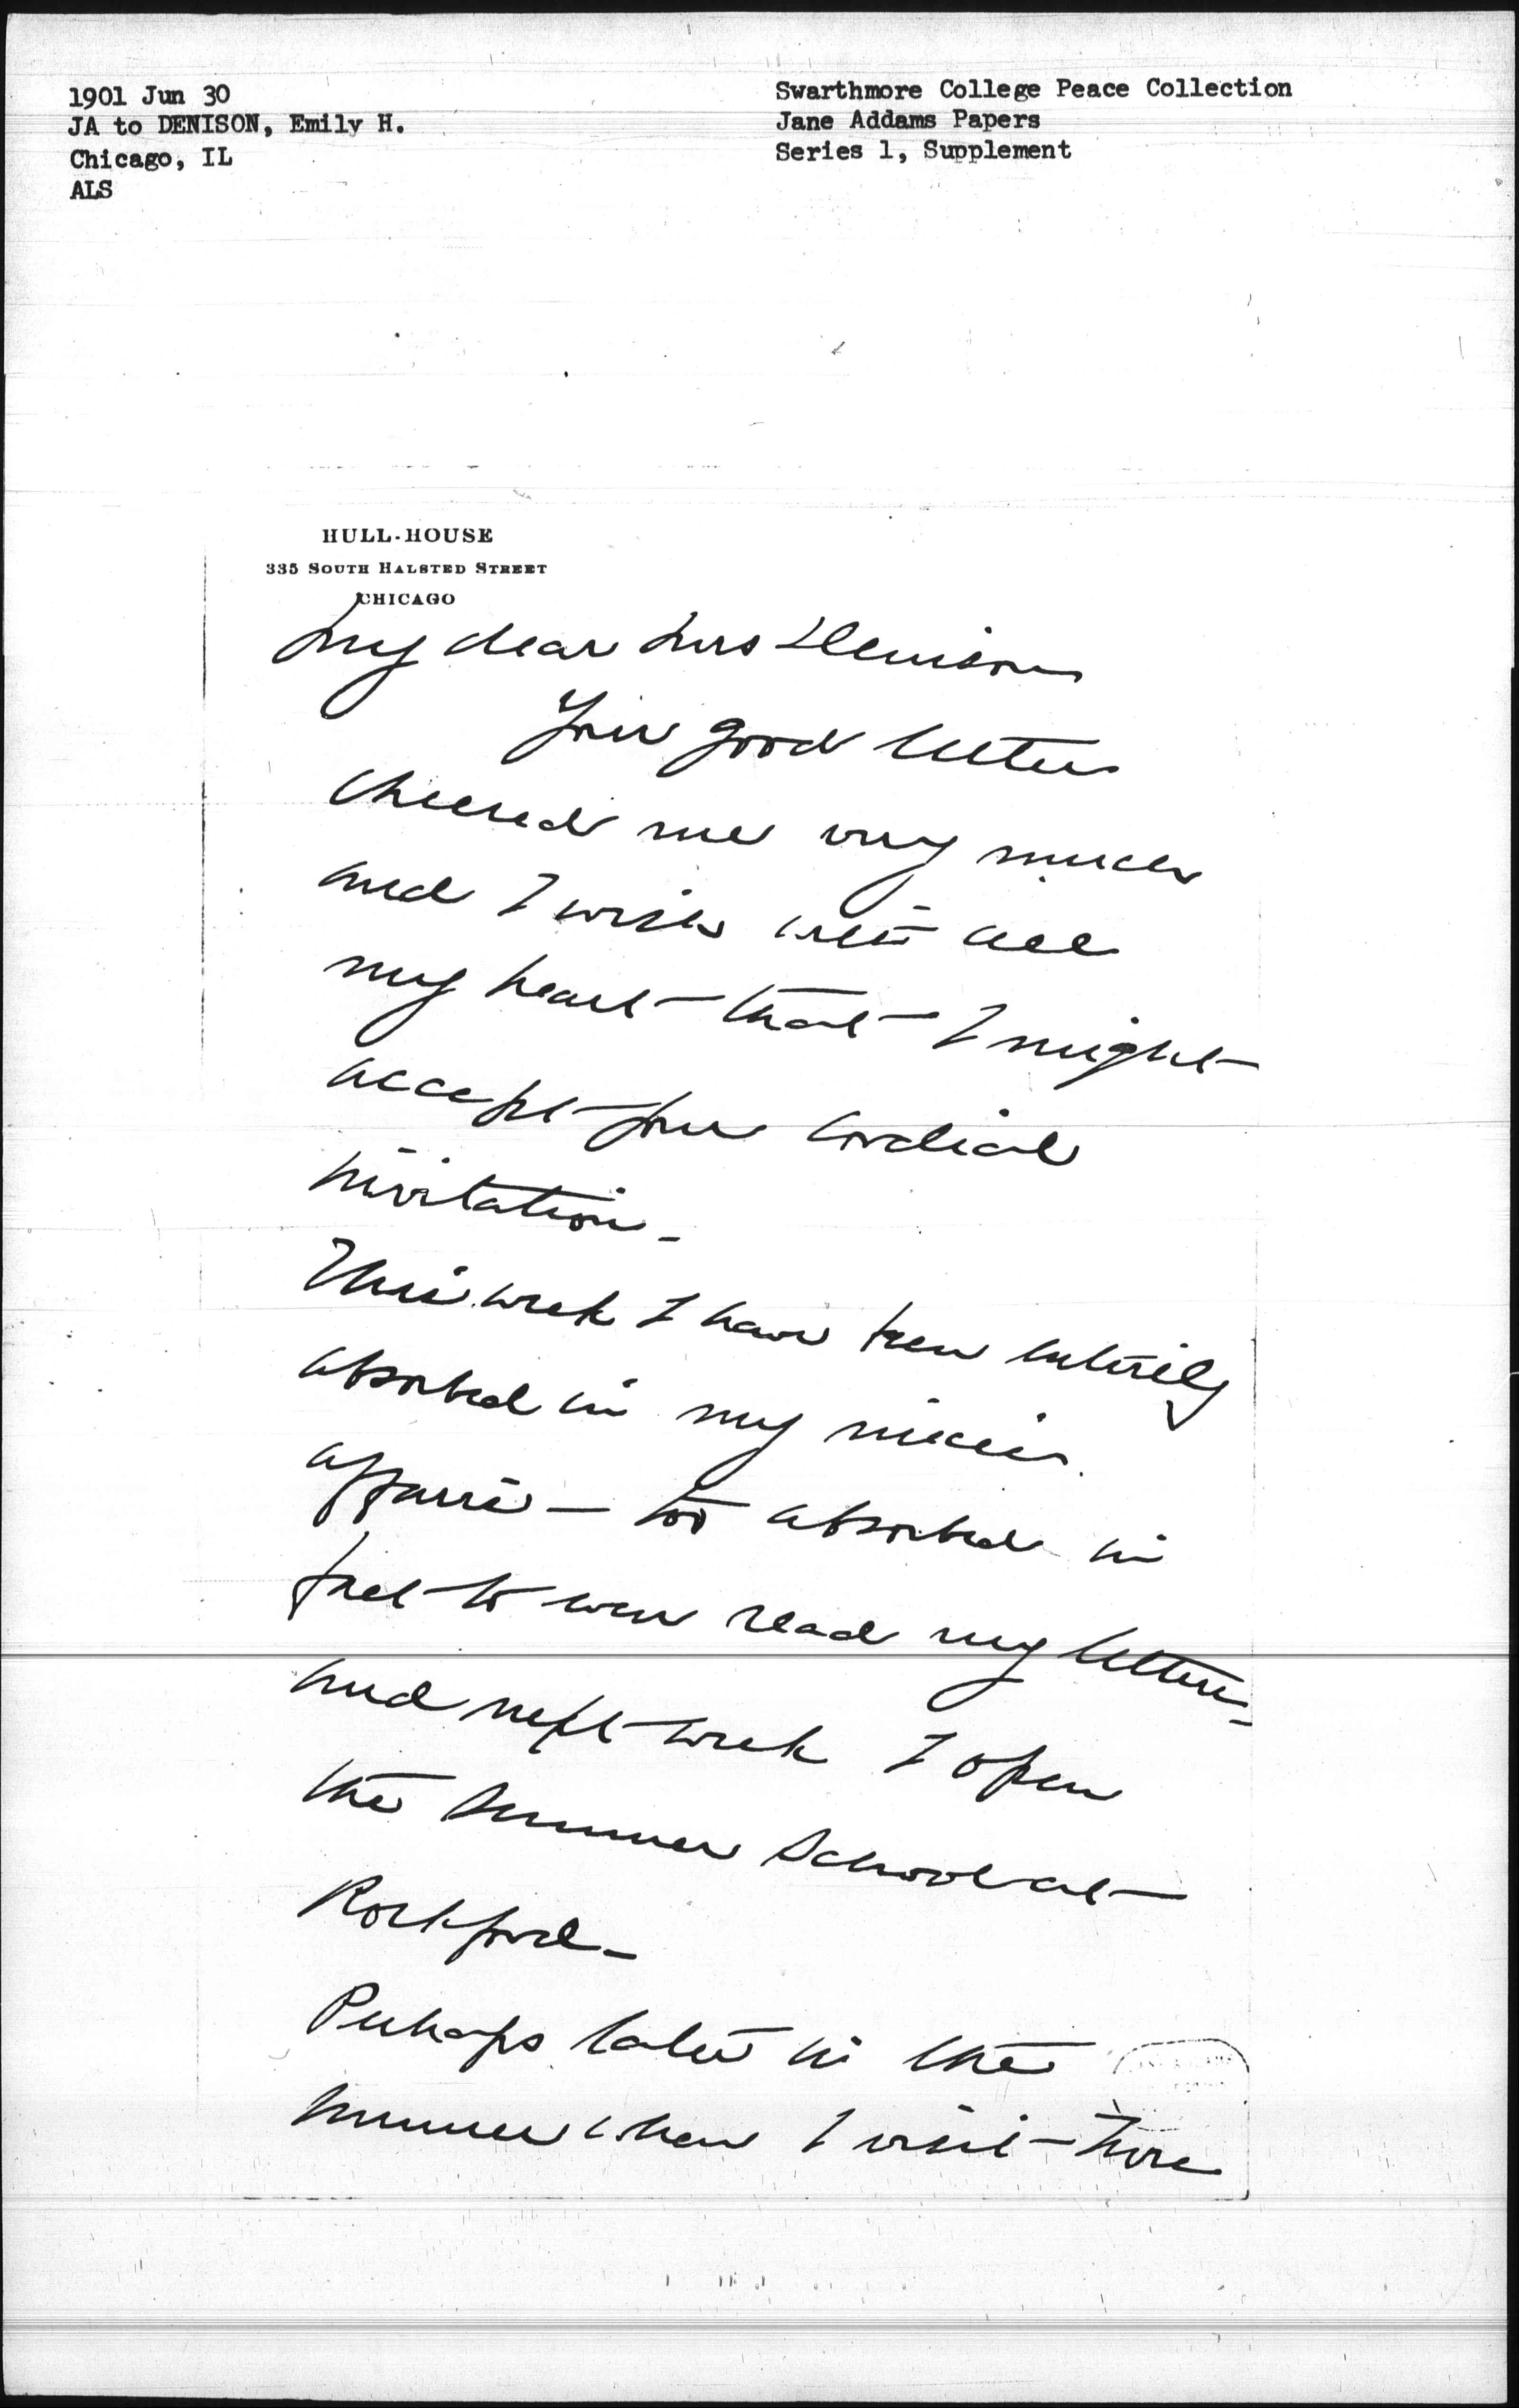 1901 Jun 30
JA to DENISON, Emily H.
Chicago, IL
ALS
Swarthmore College Peace Collection
Jane Addams Papers
Series 1, Supplement
HULL-HOUSE
335 SOUTH HALSTED STREET
CHICAGO
My dear Mrs Denison
Your good letter
cheered me very much
and I wish with all
my heart that I might
accept your cordial
invitation_
This week I have been entirely
absorbed in my niece's
affairs — too absorbed in
fact to even read my letters_
and next week I open
the Summer School at
Rockford_
Perhaps later in the
summer when I visit